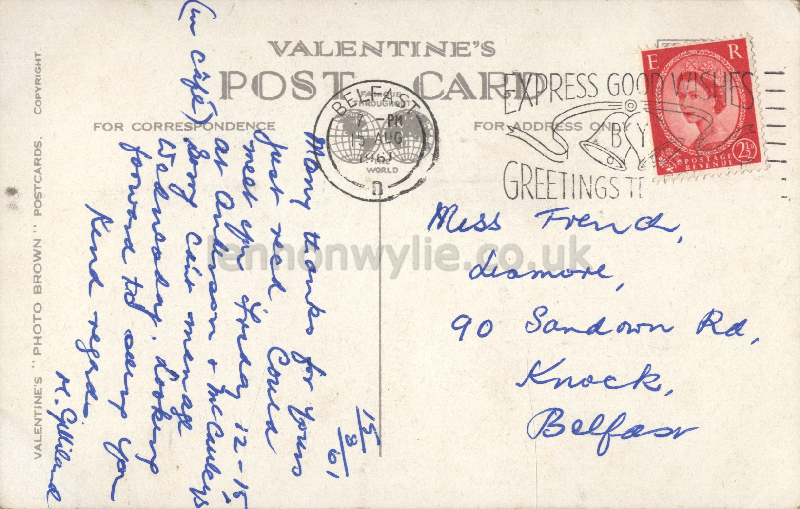 VALENTINE'S
POST CARD
FOR CORRESPONDENCE
FOR ADDRESS ONLY
VALENTINE'S "PHOTO BROWN" POSTCARDS. COPYRIGHT.
BELFAST
7 - PM
15 AUG
1961
D
WORLD
EXPRESS GOOD WISHES
BY
GREETINGS TE
E R
POSTAGE
REVENUE
2½D
15/8/61
Many thanks for yours
just recd Could
meet you Friday 12-15
at Anderson & McCauleys
(in café)
Sorry can't manage
Wednesday. Looking
forward to seeing you
Kind regards
M. Gilliland
Miss French,
Lismore,
90 Sandown Rd,
Knock,
Belfast
lennonwylie.co.uk